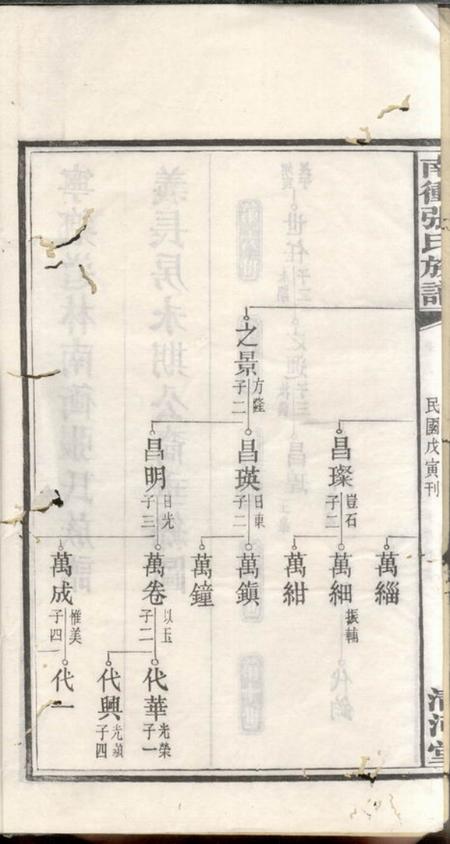 南衝張氏族譜
民國戊寅刊
清河堂
之景
方隆
子二
昌璨
豈石
子二
昌瑛
日東
子二
昌明
日光
子三
萬緇
萬細
振輔
萬紺
萬鎮
萬鐘
萬卷
以玉
子二
萬成
惟美
子四
代華
光榮
子一
代興
光蘋
子四
代一